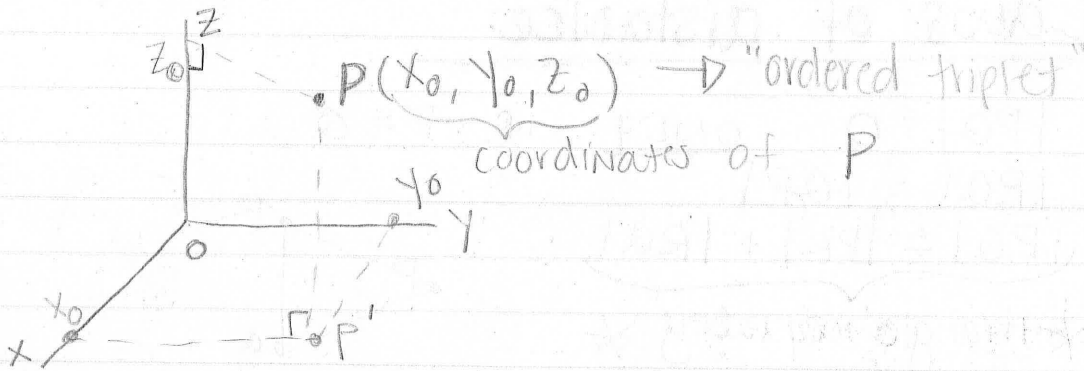 Z
Z₀
P(X₀, Y₀, Z₀) → "ordered triplet"
coordinates of P
Y₀
Y
O
X₀
P'
X